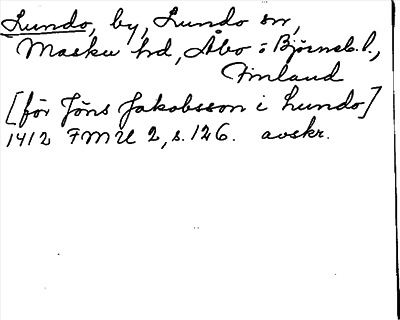 Lundo, by, Lundo sn,
Masku hd, Åbo o Björneb. l.,
Finland
[för Jöns Jakobsson i Lundo]
1412 FMU 2, s. 126. avskr.